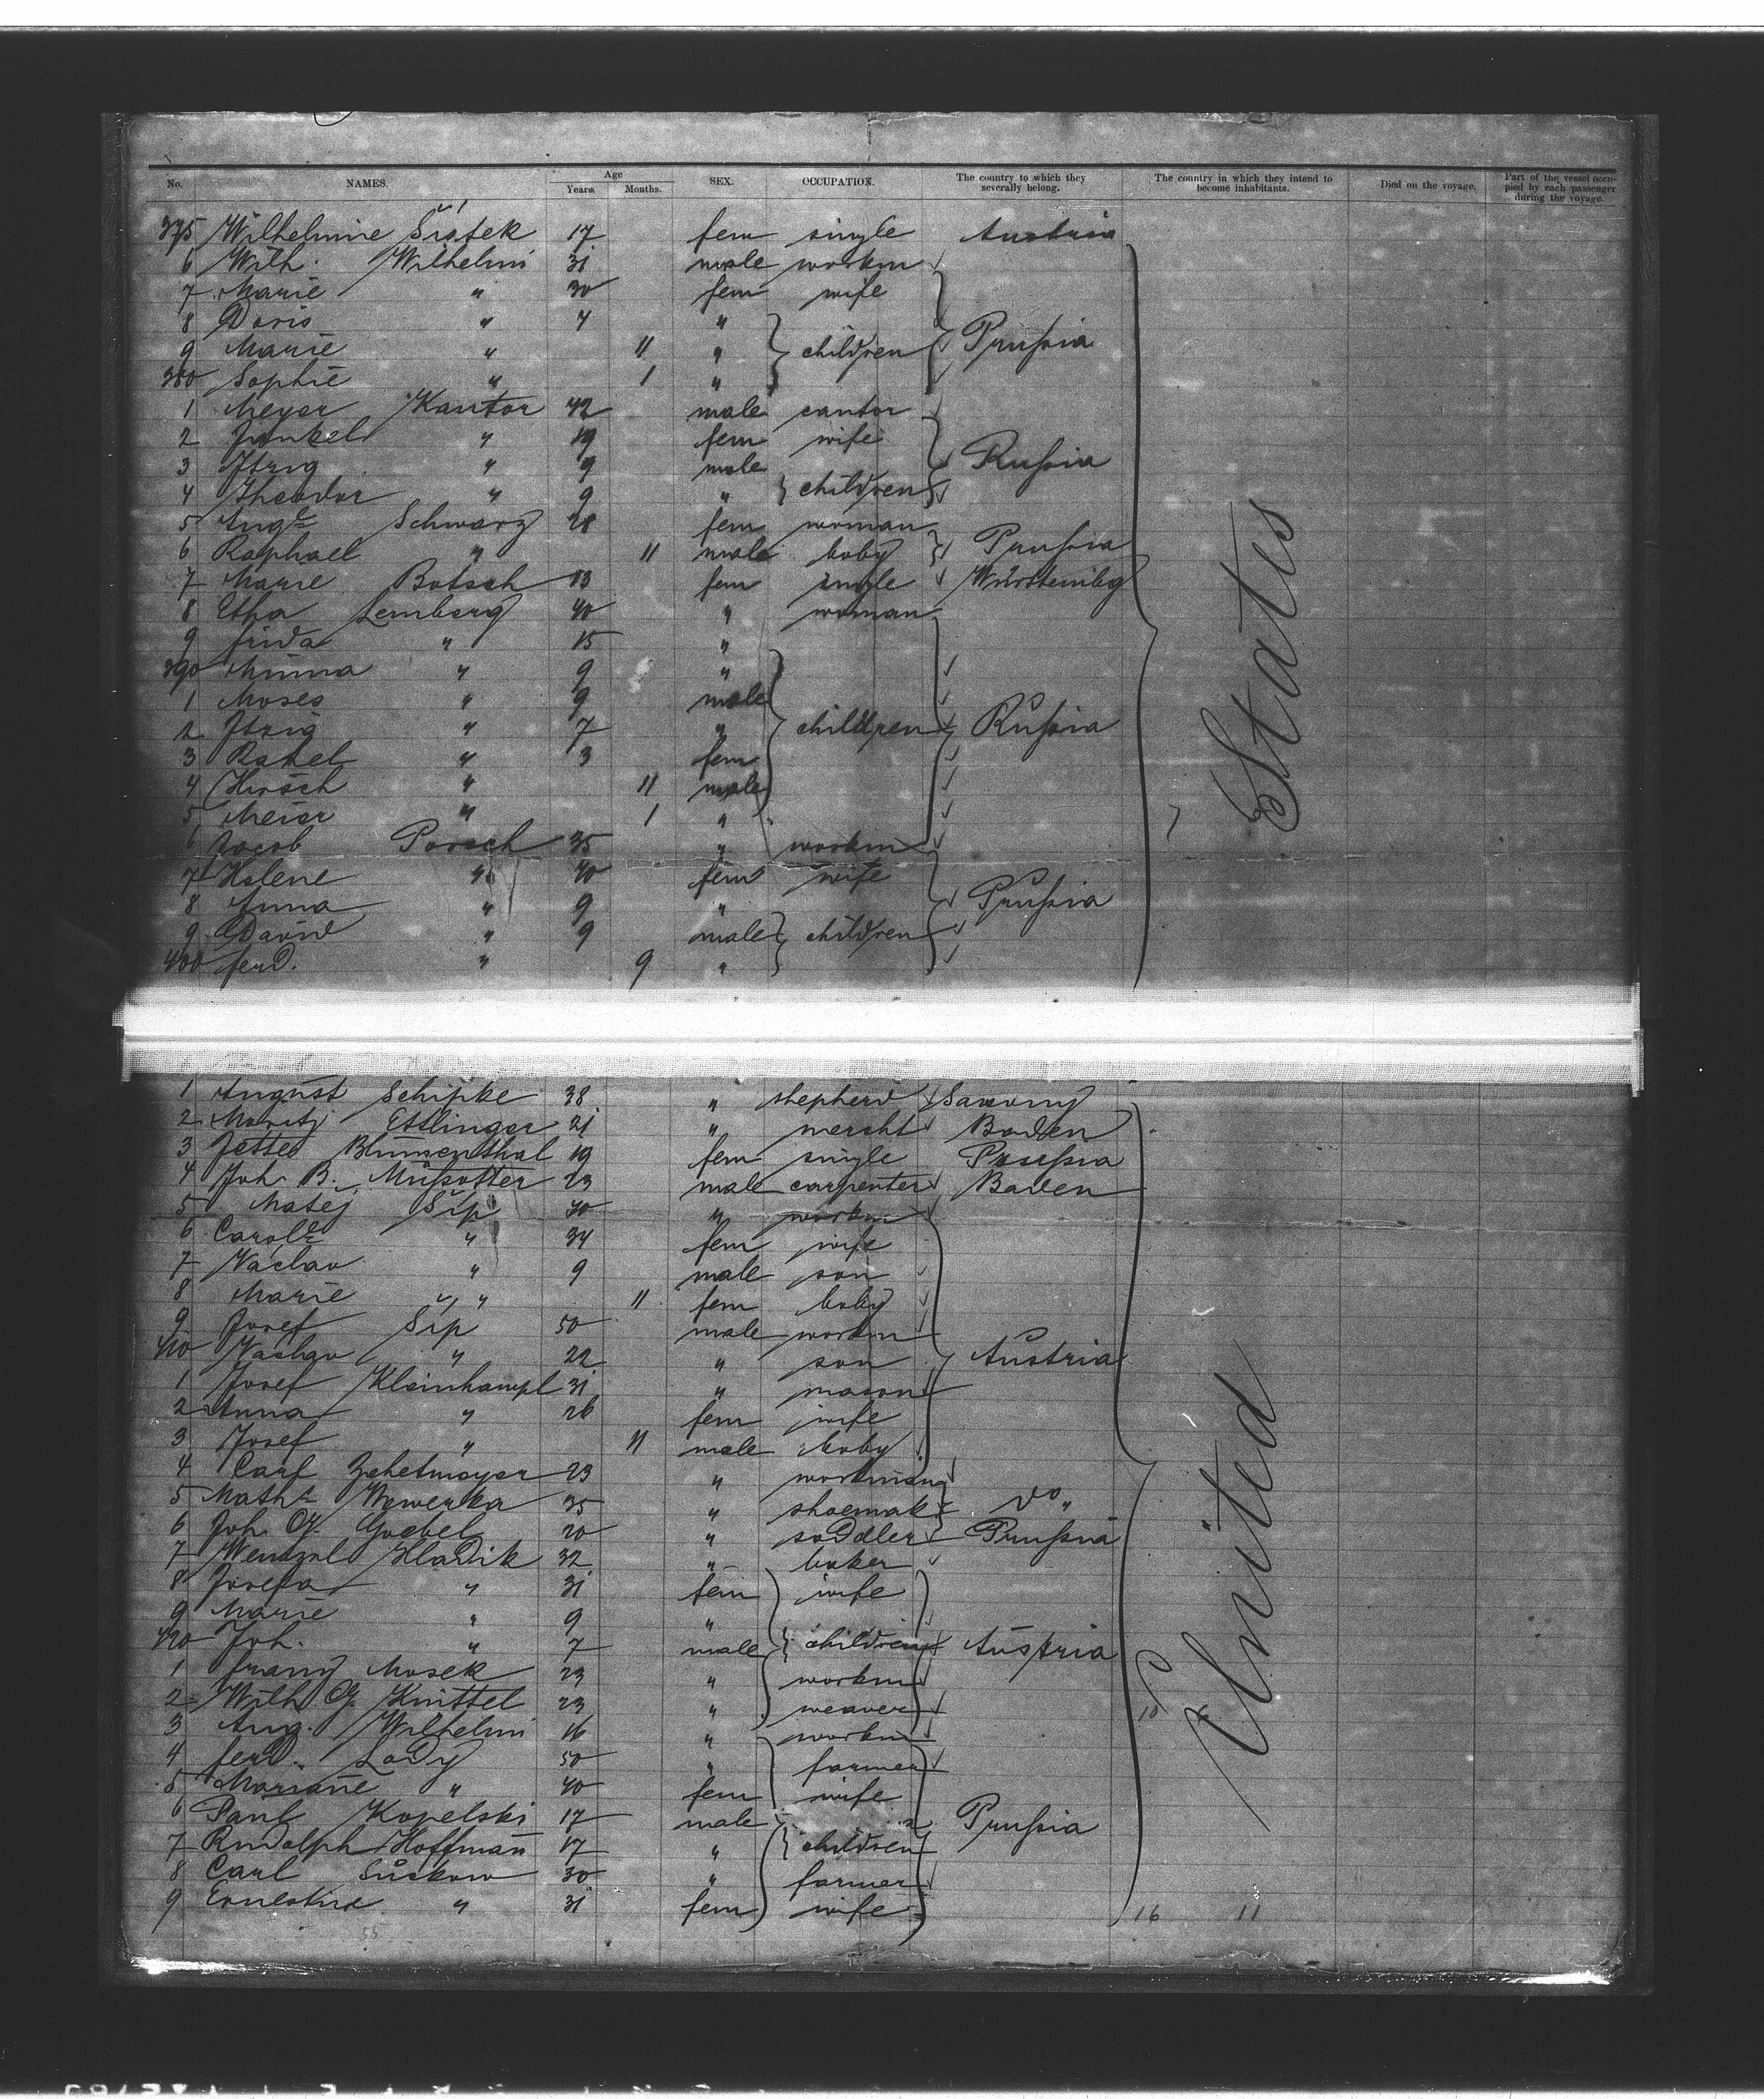 No. NAMES. Age Years. Months. SEX. OCCUPATION. The country to which they severally belong. The country in which they intend to become inhabitants. Died on the voyage. Part of the vessel occupied by each passenger during the voyage.
375 Wilhelmine 17 fem single Austria
6 Wilh. Wilhelmi 31 male workm
7 Marie " 30 fem wife
8 Doris " 4 "
9 Marie " 11 " children Prussia
380 Sophie " 1 "
1 Meyer Kantor 42 male cantor
2 Jankel " 19 fem wife
3 Itzig " 9 male Russia
4 Theodor " 9 " children
5 Augte Schwarz 28 fem woman
6 Raphael " 11 male baby Prussia
7 Marie Botsch 13 fem single Württembg
8 Etha Lemberg 40 " woman
9 Frida " 15 "
390 Minna " 9 "
1 Moses " 9 male
2 Itzig " 7 " children Russia
3 Rahel " 3 fem
4 Hirsch " 11 male
5 Meier " 1 "
6 Jacob Porsch 35 " workm
7 Helene " 40 fem wife
8 Anna " 9 " Prussia
9 David " 9 male children
400 Ferd. " 9 "
States
1 August Schipke 38 " shepherd Saxony
2 Moritz Ettlinger 21 " mercht Baden
3 Jette Blumenthal 19 fem single Prussia
4 Joh. B. 23 male carpenter Baden
5 Matej Šíp 40 " workm
6 Carole " 34 fem wife
7 Vaclav " 9 male son
8 Marie " 11 fem baby
9 Josef Šíp 50 male workm
410 Vaclav " 22 " son Austria
1 Josef Kleinhampl 31 " mason
2 Anna " 26 fem wife
3 Josef " 11 male baby
4 Carl Zehetmayer 23 " workman
5 Maths Wewerka 35 " shoemak do "
6 Joh. G. Goebel 20 " saddler Prussia
7 Wenzel Hladik 32 " baker
8 Josefa " 31 fem wife
9 Marie " 9 "
420 Joh. " 7 male children Austria
1 Franz Mosek 23 " workm
2 Wilh. G. Knittel 23 " weaver
3 Aug. Wilhelmi 16 " workm
4 Ferd. Lody 50 " farmer
5 Mariane " 40 fem wife
6 Paul Kopelski 17 male Prussia
7 Rudolph Hoffmann 17 " children
8 Carl Suckow 30 " farmer
9 Ernestine " 31 fem wife
16 11
United
55